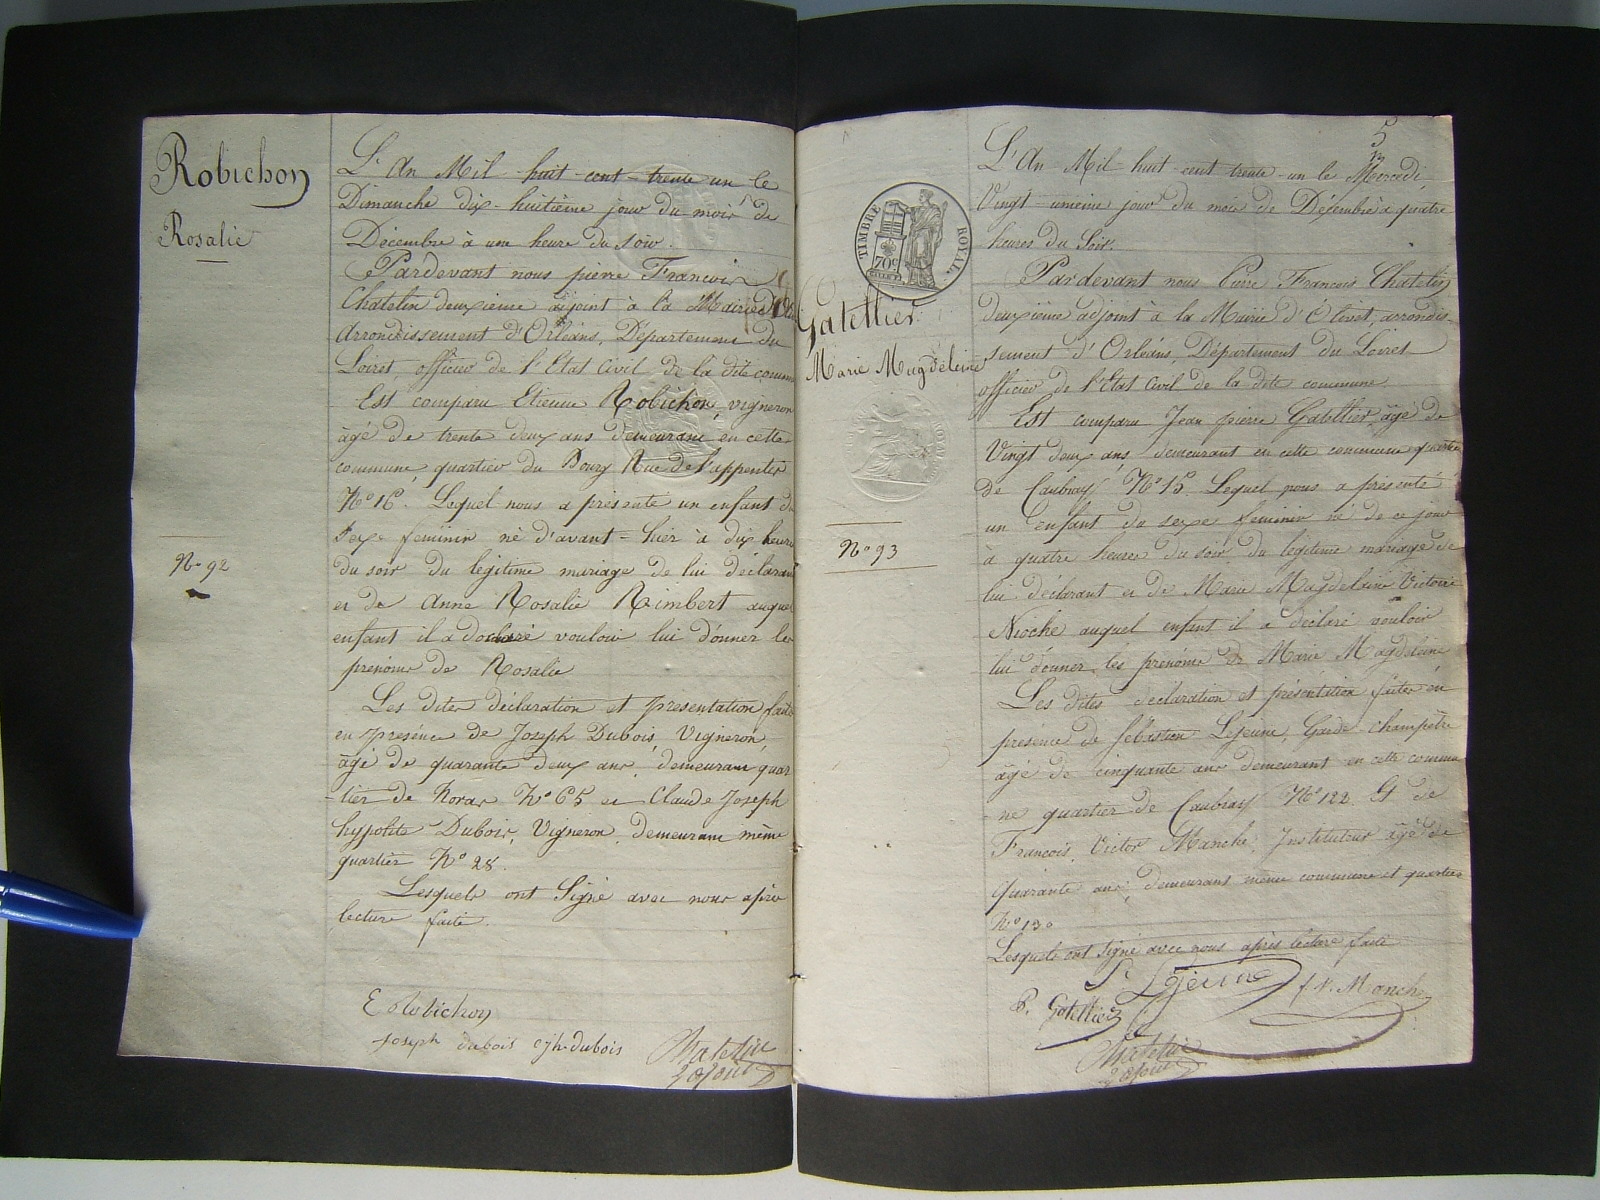 Robichon
Rosalie
N° 92
L'An Mil huit cent trente un le
Dimanche dix-huitième jour du mois de
Décembre à une heure du soir.
Pardevant nous pierre François
Chatelin deuxieme adjoint à la Mairie
Arrondissement d'Orléans, Département du
Loiret, officier de l'Etat Civil de la dite comm
Est comparu Etienne Robichon, vigneron
âgé de trente deux ans demeurant en cette
commune, quartier du Bourg Rue de l'appenter
N° 16. Lequel nous a présenté un enfant d
Sexe feminin né d'avant-hier à dix heures
du soir du légitime mariage de lui déclarant
et de Anne Rosalie Rimbert auquel
enfant il a declaré vouloir lui donner le
prénom de Rosalie
Les dites déclaration et presentation faite
en présence de Joseph Dubois, Vigneron,
âgé de quarante deux ans, demeurant quar
-tier de N° 65 et Claude Joseph
hypolite Dubois, Vigneron, demeurant même
quartier N° 28.
Lesquels ont Signé avec nous après
lecture faite.
E Robichon
Joseph dubois cjh. dubois
Chatelin
2 adjoint
5
TIMBRE ROYAL
70c
Gatellier
Marie Magdeleine
N° 93
L'An Mil huit cent trente-un le Mercredi
Vingt-unieme jour du mois de Décembre à quatre
heures du Soir.
Pardevant nous Pierre François Chatelin
deuxieme adjoint à la Mairie d'Olivet, arrondis
sement d'Orléans, Département du Loiret
officier de l'Etat Civil de la dite commune
Est comparu Jean pierre Gatellier, âgé de
Vingt deux ans, demeurant en cette commune quartier
de Caubray N° 15. Lequel nous a présenté
un enfant du sexe feminin né de ce jour
à quatre heures du soir du légitime mariage de
lui déclarant et de Marie Magdelaine Victoire
Nioche auquel enfant il a déclaré vouloir
lui donner les prénoms de Marie Magdeleine
Les dites declaration et présentation faites en
présence de Sébastien Lejeune, Garde champêtre
âgé de cinquante ans demeurant en cette commu
-ne quartier de Caubray N° 122. Et de
François Victor Manche, Instituteur âgé de
quarante ans, demeurant même commune et quartier
N° 130
Lesquels ont signé avec nous après lecture faite
S. Lejeune
f. V. Manche
P. Gatellier
Chatelin
2 adjoint